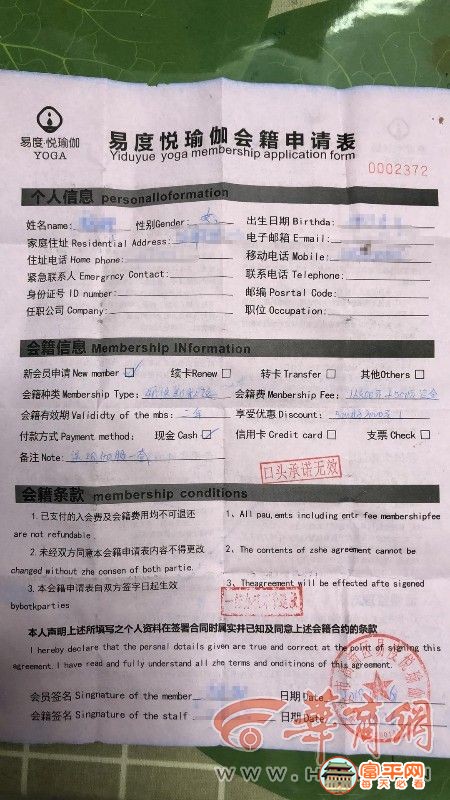 易度·悦瑜伽
YOGA
易度悦瑜伽会籍申请表
Yiduyue yoga membership application form
0002372
个人信息 personalIoformation
姓名name: 性别Gender: 女 出生日期 Birthda:
家庭住址 Residential Address: 电子邮箱 E-mail:
住址电话 Home phone: 移动电话 Mobile:
紧急联系人 Emergrncy Contact: 联系电话 Telephone:
身份证号 ID number: 邮编 Posrtal Code:
任职公司 Company: 职位 Occupation:
会籍信息 Membership INformation
新会员申请 New member ☑ 续卡Renew □ 转卡 Transfer □ 其他Others □
会籍种类 Membership Type: 会籍费 Membership Fee:
会籍有效期 Valididty of the mbs: 二年 享受优惠 Discount:
付款方式 Payment method: 现金 Cash ☑ 信用卡 Credit card □ 支票 Check □
备注 Note: 送瑜伽服一套
口头承诺无效
会籍条款 membership conditions
1. 已支付的入会费及会籍费用均不可退还 1、All pau,emts including entr fee membershipfee
are not refundable .
2. 未经双方同意本会籍申请表内容不得更改 2、The contents of zshe agreement cannot be
changed without zhe consen of both partie.
3. 本会籍申请表自双方签字日起生效 3、Theagreement will be effected afte sigened
bybotkparties
本人声明上述所填写之个人资料在签署合同时属实并已知及同意上述会籍合约的条款
I hereby declare that the persnal dotails given are true and correct at the point of signing this
agreement. I have read and fully understand all zhe terms and onditinons of this agreement.
会员签名 Singnature of the member 日期 Date
会籍签名 Singnature of the stalf 日期 Date
华商网
富平网
每天必看